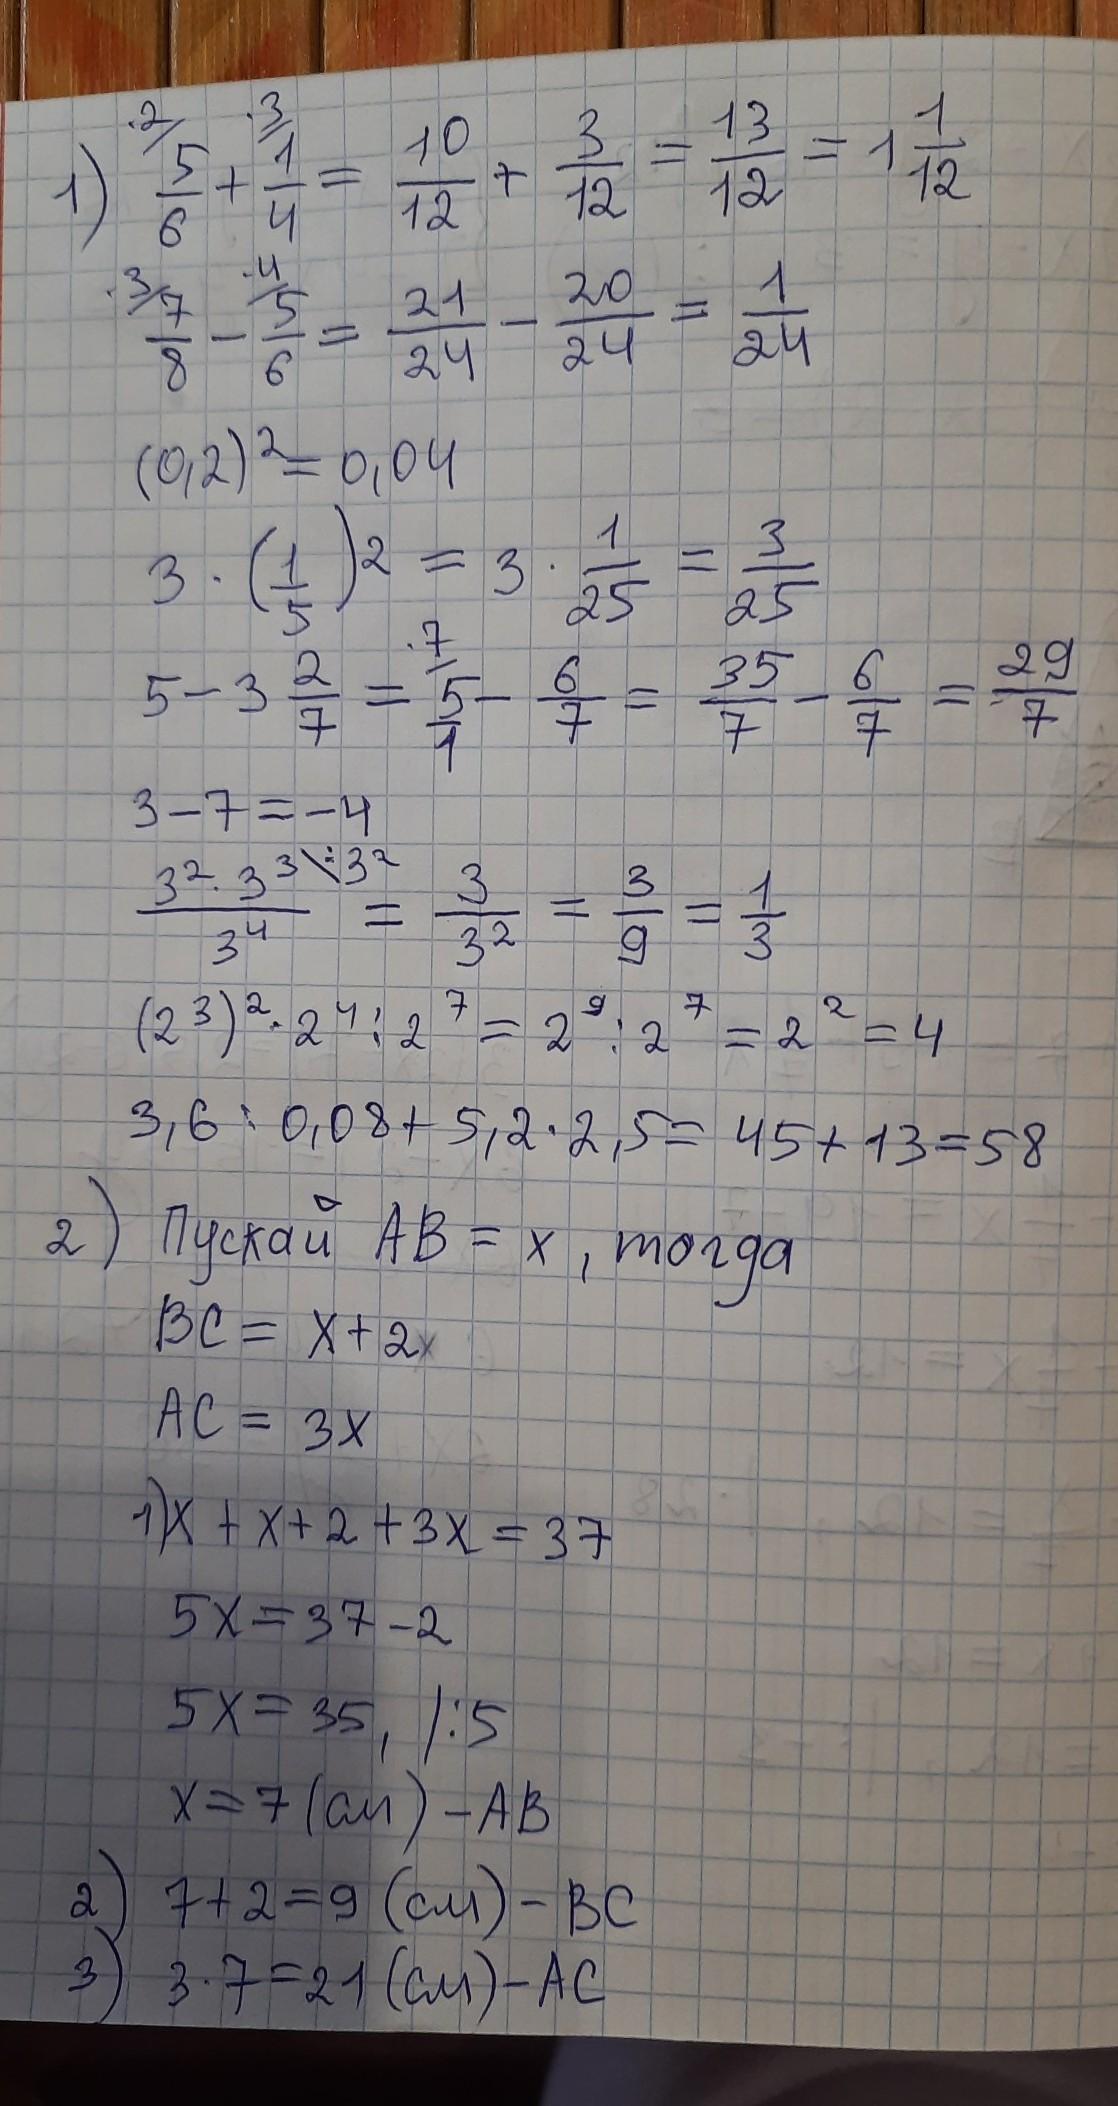 1) ·2/ 5/6 + ·3/ 1/4 = 10/12 + 3/12 = 13/12 = 1 1/12
·3/ 7/8 - ·4/ 5/6 = 21/24 - 20/24 = 1/24
(0,2)² = 0,04
3 · (1/5)² = 3 · 1/25 = 3/25
5 - 3 2/7 = ·7/ 5/1 - 6/7 = 35/7 - 6/7 = 29/7
3 - 7 = -4
3² · 3³ \:3² / 3⁴ = 3/3² = 3/9 = 1/3
(2³)² · 2⁴ : 2⁷ = 2⁹ : 2⁷ = 2² = 4
3,6 : 0,08 + 5,2 · 2,5 = 45 + 13 = 58
2) Пускай AB = x, тогда
BC = x + 2x
AC = 3x
1) x + x + 2 + 3x = 37
5x = 37 - 2
5x = 35, /:5
x = 7 (см) - AB
2) 7 + 2 = 9 (см) - BC
3) 3 · 7 = 21 (см) - AC